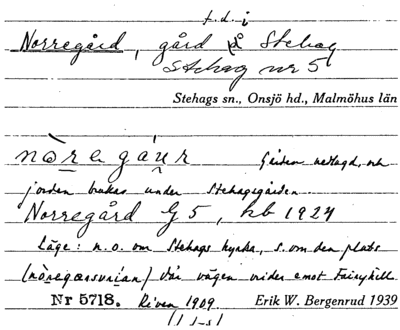 t.d. i
Norregård, gård på Stehag
Stehag nr 5
Stehags sn., Onsjö hd., Malmöhus län
nòregáu̯r Gården nedlagd, och
jorden brukas under Stehagsgården.
Norregård G 5, kb 1924
Läge: n.o. om Stehags kyrka, s. om den plats
där vägen vrider emot Fairyhill
Nr 5718. Riven 1909. Erik W. Bergenrud 1939